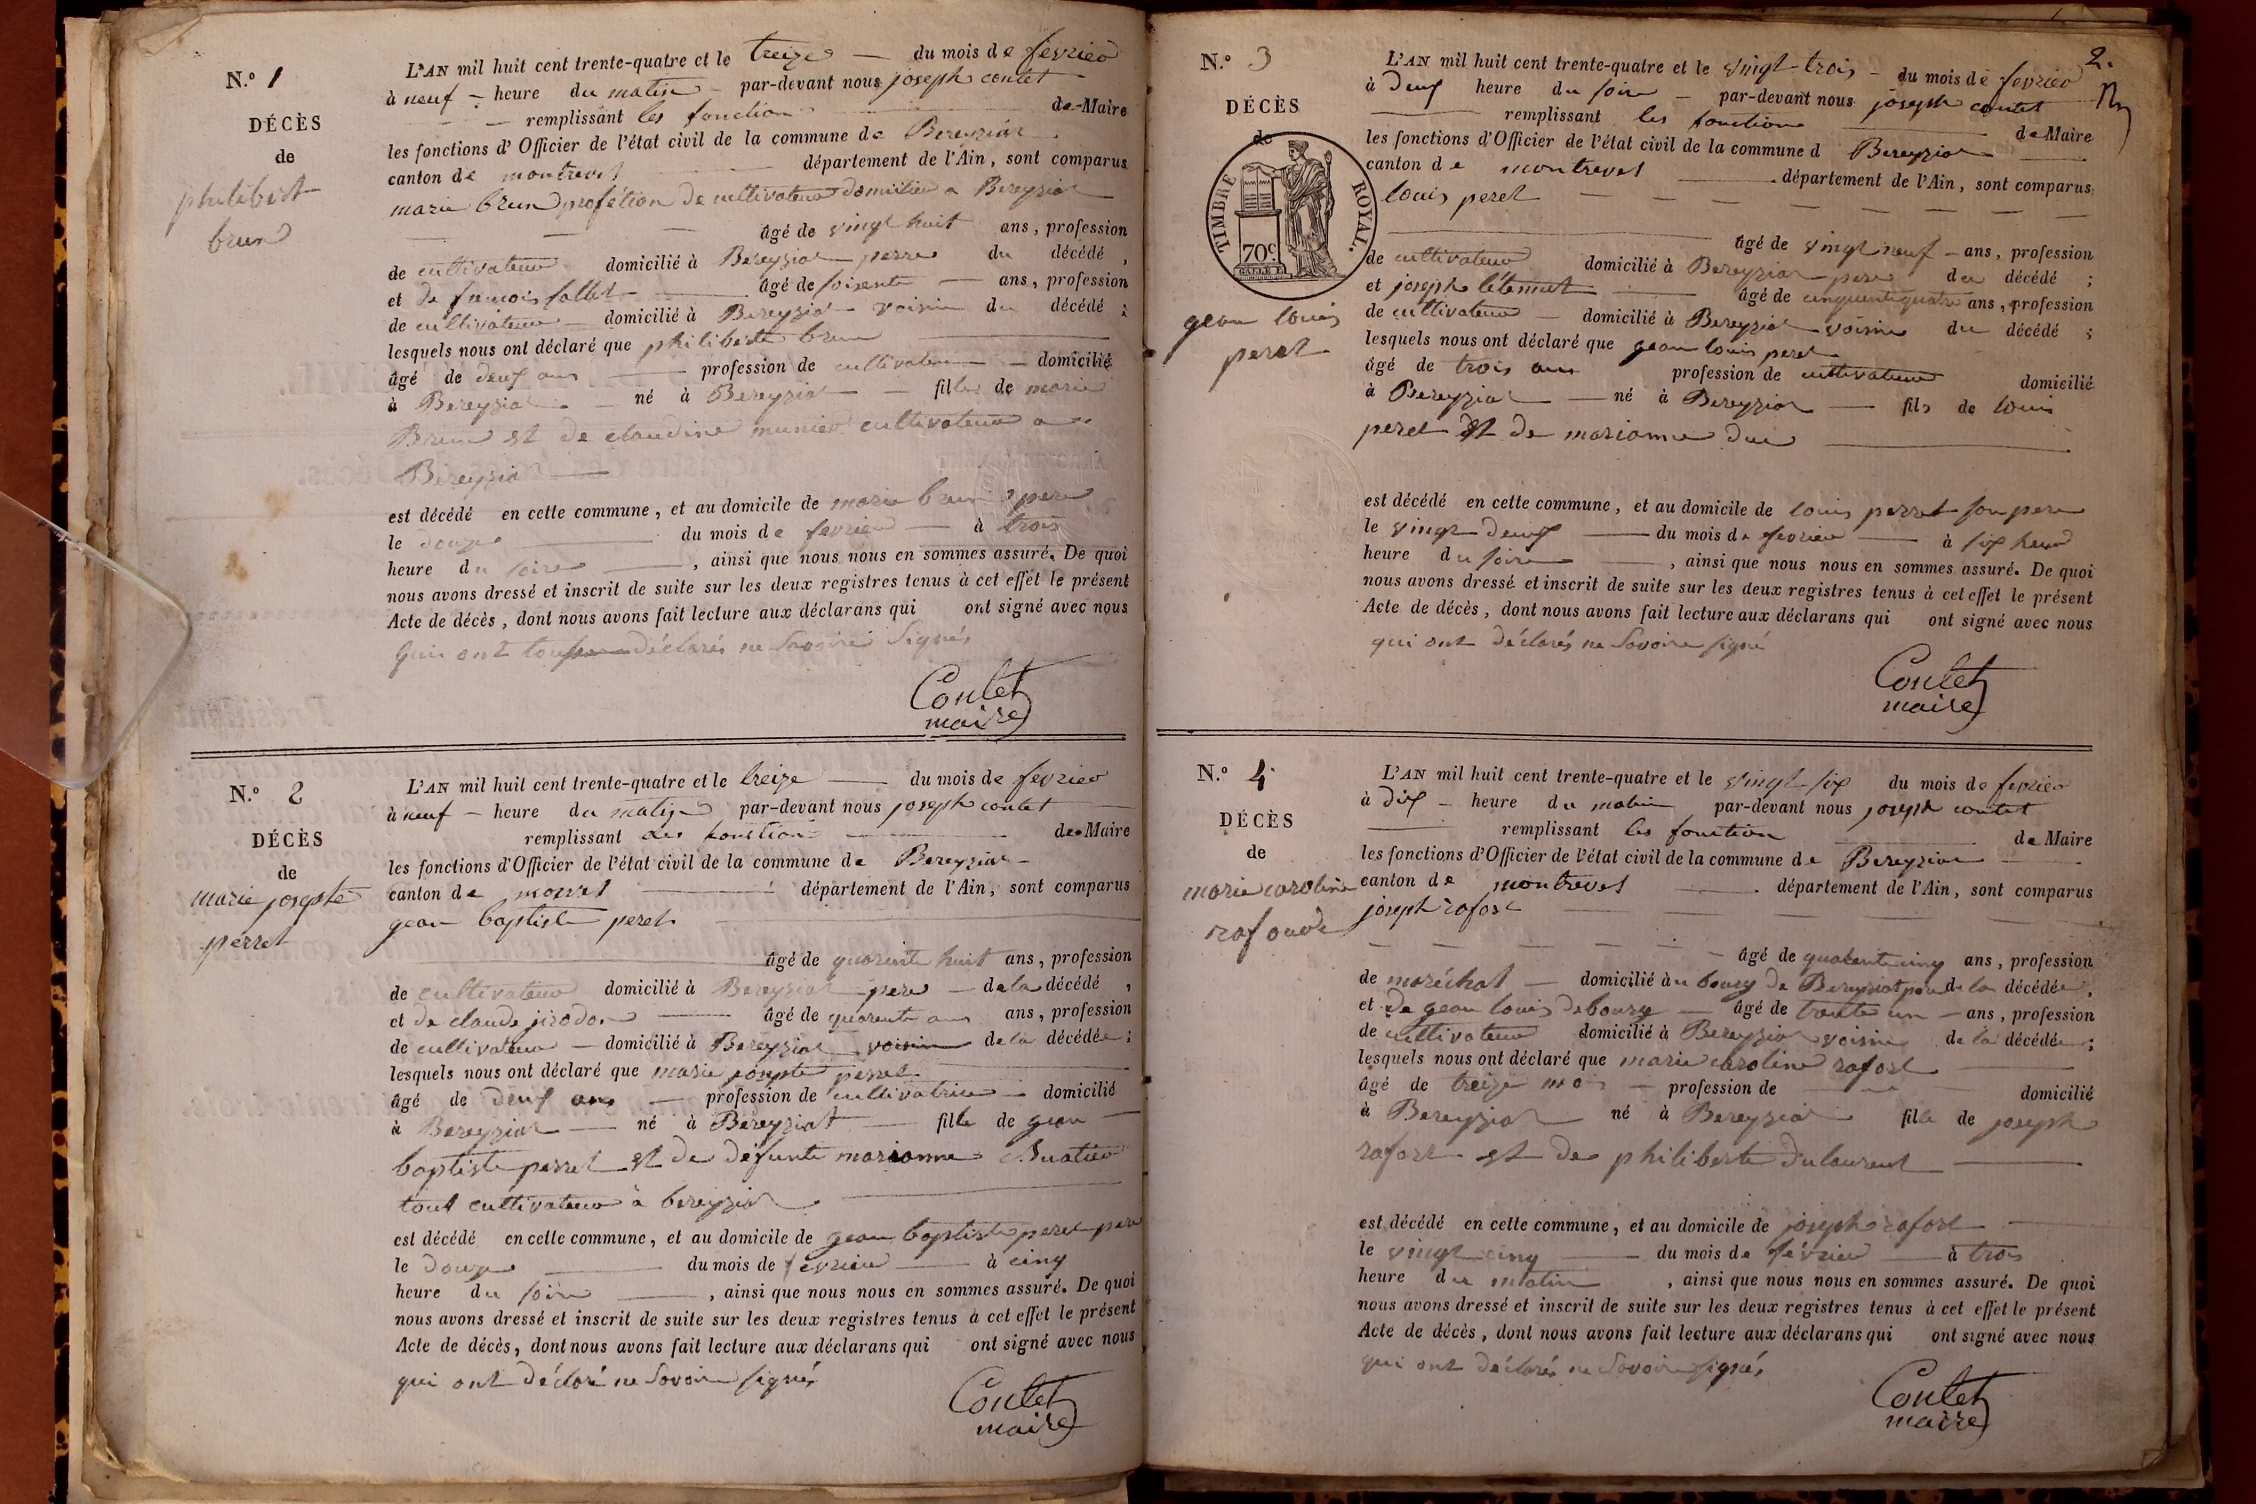 N.º 1
DÉCÈS
de
philibert
brun
L'AN mil huit cent trente-quatre et le treize du mois de fevrier
à neuf heure du matin par-devant nous joseph contet
remplissant les fonction de Maire
les fonctions d'Officier de l'état civil de la commune de Bereyziat
canton de montrevel département de l'Ain, sont comparus
marie brun profétion de cultivateur domicilier a Bereyziat
âgé de vingt huit ans, profession
de cultivateur domicilié à Bereyziat perre du décédé,
et de francois âgé de soisente ans, profession
de cultivateur domicilié à Bereyziat voisin du décédé;
lesquels nous ont déclaré que philiberte brun
âgé de deux ans profession de cultivateur domicilié
à Bereyziat né à Bereyziat fille de marie
Brun et de claudine munier cultivateur a
Bereyziat
est décédé en cette commune, et au domicile de marie brun pere
le douze du mois de fevrier à trois
heure du soire, ainsi que nous nous en sommes assuré. De quoi
nous avons dressé et inscrit de suite sur les deux registres tenus à cet effet le présent
Acte de décès, dont nous avons fait lecture aux déclarans qui ont signé avec nous
qui ont déclarés ne Savoire Signés
Contet
maire
N.º 2
DÉCÈS
de
marie josephte
perret
L'AN mil huit cent trente-quatre et le treize du mois de fevrier
à neuf heure du matin par-devant nous joseph contet
remplissant les fonction de Maire
les fonctions d'Officier de l'état civil de la commune de Bereyziat
canton de département de l'Ain, sont comparus
gean baptiste peret
âgé de quarente huit ans, profession
de cultivateur domicilié à Bereyziat pere de la décédé,
et de claude jirodon âgé de quarente ans ans, profession
de cultivateur domicilié à Bereyziat voisin de la décédée;
lesquels nous ont déclaré que marie josephte perret
âgé de deux ans profession de cultivatrice domicilié
à Bereyziat né à Béreyziat fille de gean
baptiste perret et de défunte marianne
tout cultivateur à bereyziat
est décédé en cette commune, et au domicile de gean baptiste peret pere
le douze du mois de fevrier à cinq
heure du soire, ainsi que nous nous en sommes assuré. De quoi
nous avons dressé et inscrit de suite sur les deux registres tenus à cet effet le présent
Acte de décès, dont nous avons fait lecture aux déclarans qui ont signé avec nous
qui ont déclaré ne Savoire signés
Contet
maire
2.
N.º 3
DÉCÈS
de
TIMBRE ROYAL.
70c.
gean louis
peret
L'AN mil huit cent trente-quatre et le vingt trois du mois de fevrier
à deux heure du soire par-devant nous joseph contet
remplissant les fonction de Maire
les fonctions d'Officier de l'état civil de la commune d Bereyziat
canton de montrevel département de l'Ain, sont comparus
louis peret
âgé de vingt neuf ans, profession
de cultivateur domicilié à Bereyziat pere du décédé;
et joseph âgé de cinquente quatre ans, profession
de cultivateur domicilié à Bereyziat voisin du décédé;
lesquels nous ont déclaré que gean louis peret
âgé de trois ans profession de cultivateur domicilié
à Bereyziat né à Bereyziat fils de louis
peret et de marianne
est décédé en cette commune, et au domicile de louis perret son pere
le vingt deux du mois de fevrier à six heure
heure du soire, ainsi que nous nous en sommes assuré. De quoi
nous avons dressé et inscrit de suite sur les deux registres tenus à cet effet le présent
Acte de décès, dont nous avons fait lecture aux déclarans qui ont signé avec nous
qui ont déclarés ne Savoire signé
Contet
maire
N.º 4
DÉCÈS
de
marie caroline
L'AN mil huit cent trente-quatre et le vingt six du mois de fevrier
à dix heure du matin par-devant nous joseph contet
remplissant les fonction de Maire
les fonctions d'Officier de l'état civil de la commune de Bereyziat
canton de montrevel département de l'Ain, sont comparus
joseph rafort
âgé de quarente cinq ans, profession
de maréchal domicilié à u bourg de Bereyziat pere de la décédée,
et de gean louis debourg âgé de trente un ans, profession
de cultivateur domicilié à Bereyziat voisin de la décédée;
lesquels nous ont déclaré que marie caroline rafort
âgé de treize mois profession de domicilié
à Bereyziat né à Bereyziat fille de joseph
rafort et de philiberte dulaurent
est décédé en cette commune, et au domicile de joseph rafort
le vingt cinq du mois de février à trois
heure du matin, ainsi que nous nous en sommes assuré. De quoi
nous avons dressé et inscrit de suite sur les deux registres tenus à cet effet le présent
Acte de décès, dont nous avons fait lecture aux déclarans qui ont signé avec nous
qui ont déclarés ne Savoire signés
Contet
maire